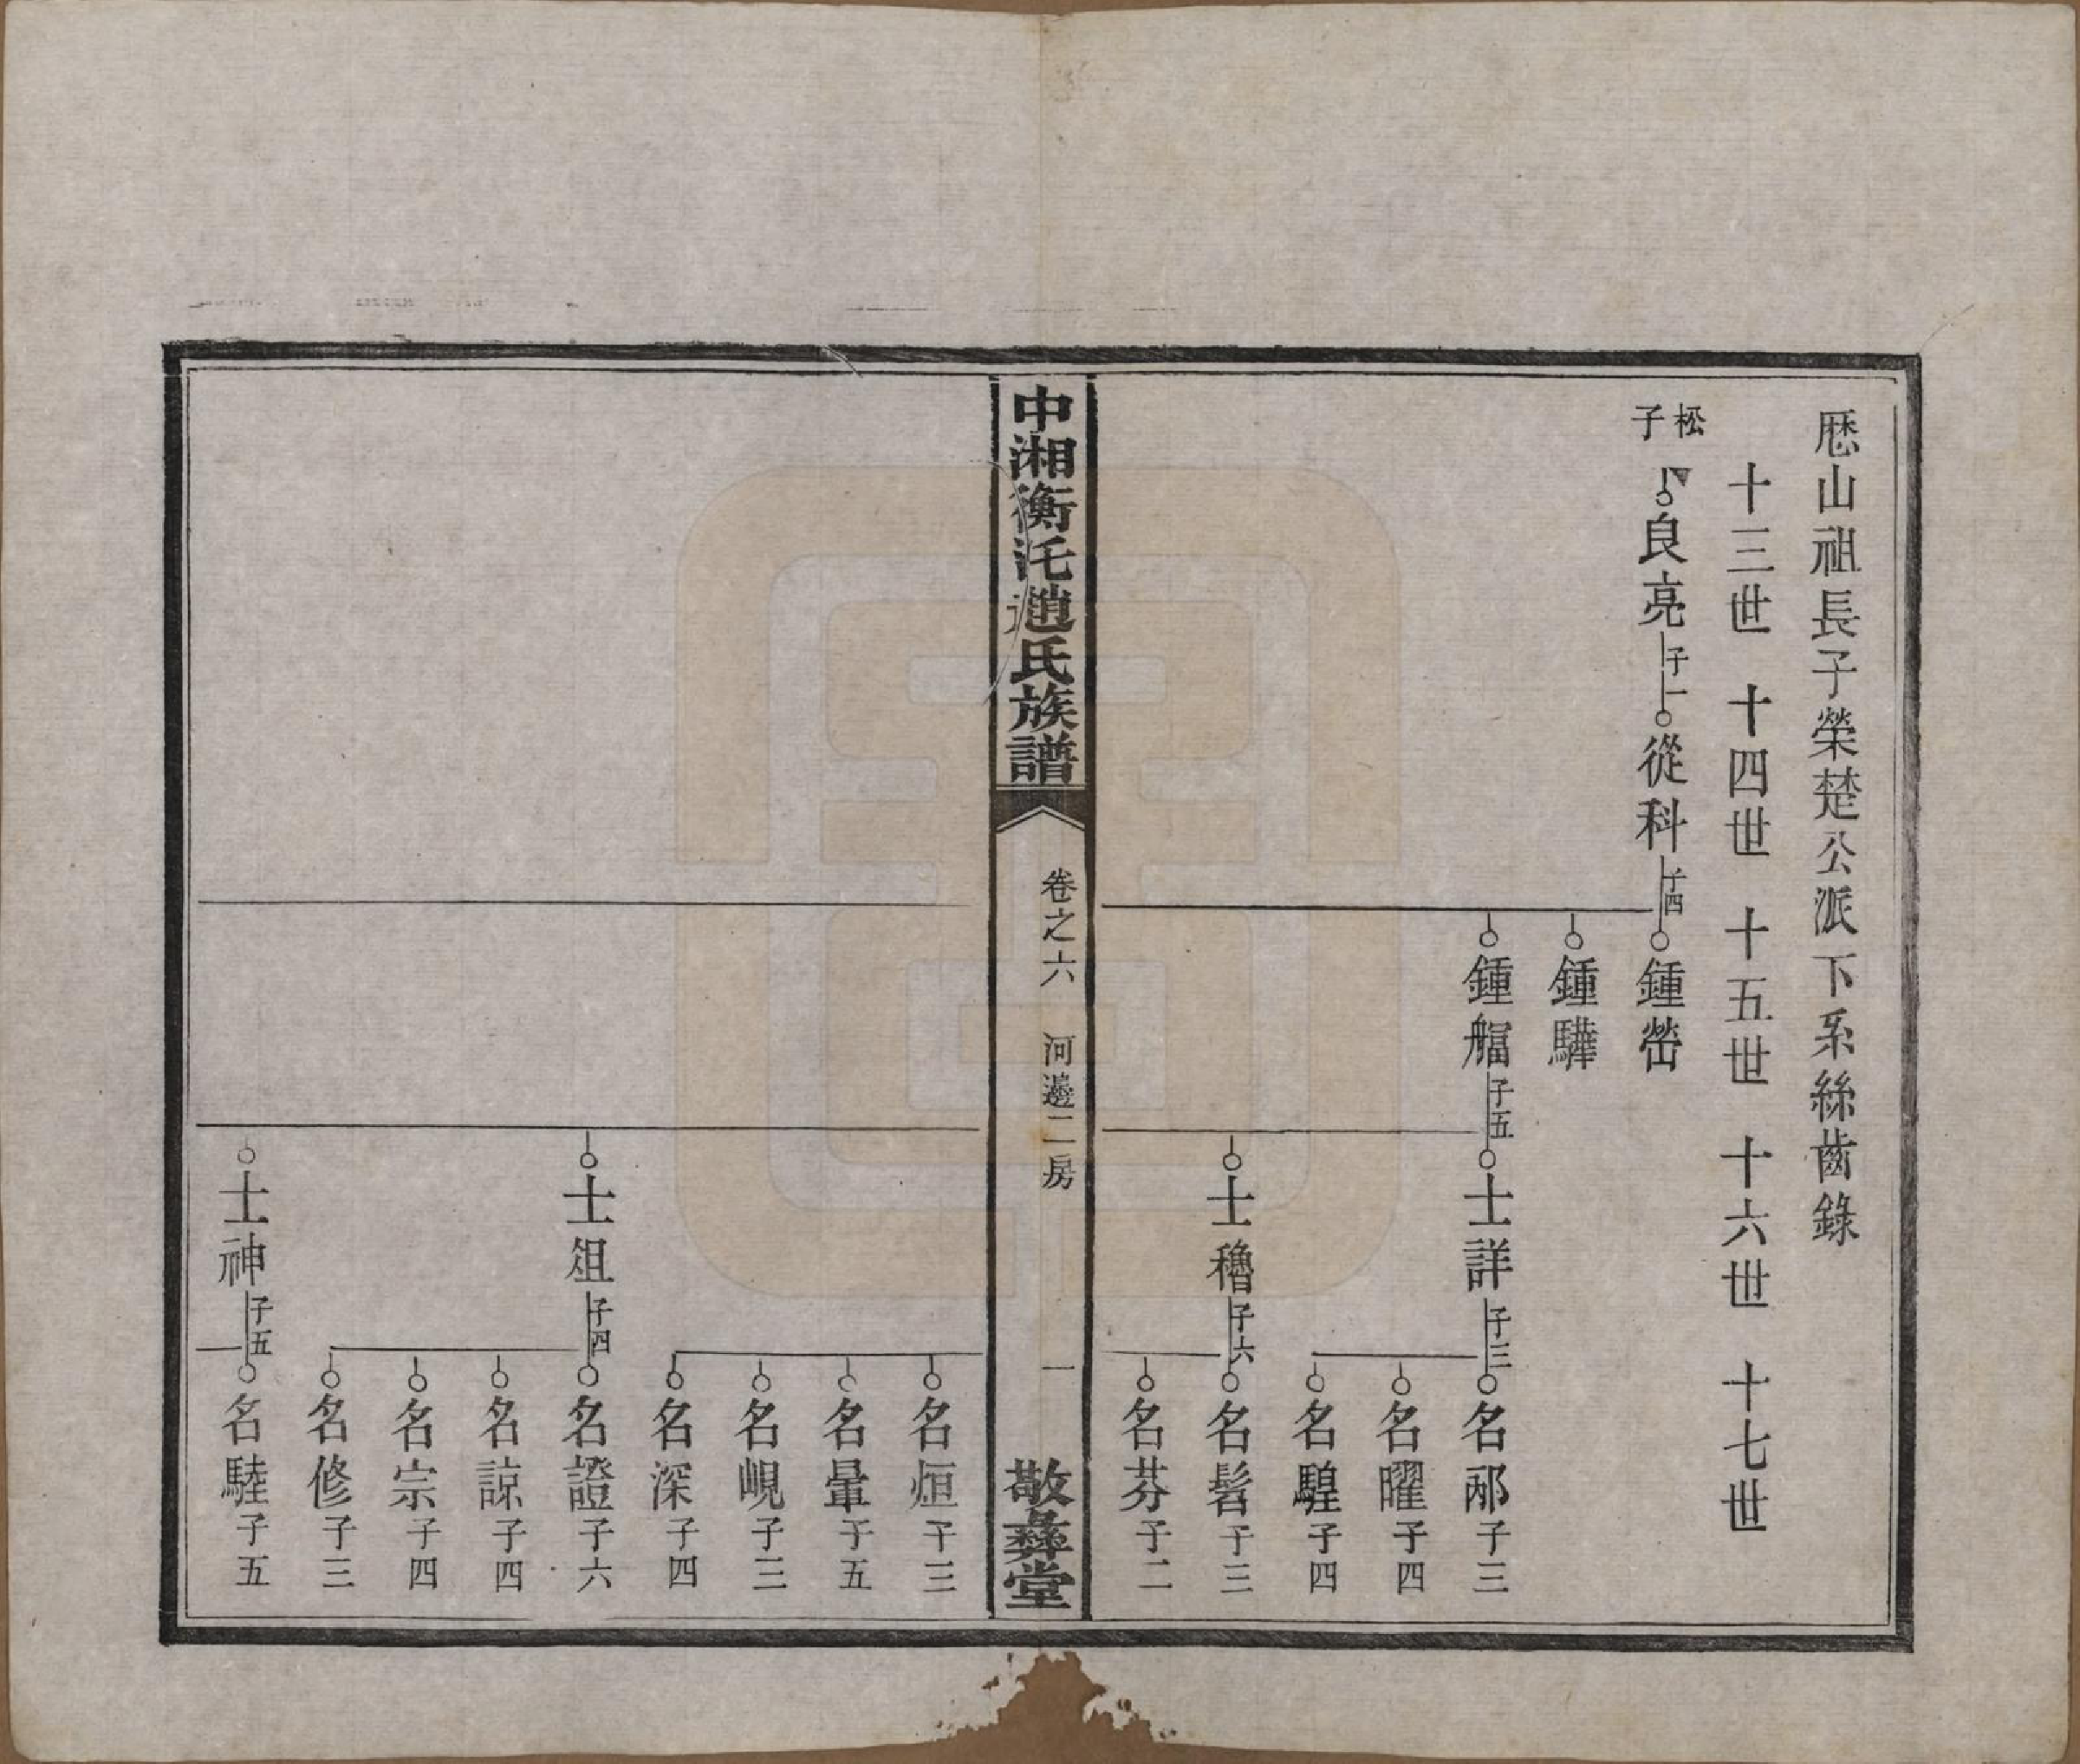 厯山祖長子榮楚公派下系絲齒錄
十三世 十四世 十五世 十六世 十七世
松子 良亮 子一 從科 子四 鍾嵤
鍾驊
鍾艒 子五 士詳 子三 名邴 子三
名曜 子四
名騜 子四
士穭 子六 名髫 子三
名芬 子二
中湘衡沰趙氏族譜 卷之六 河邊二房 一 敬彝堂
名烜 子三
名暈 子五
名峴 子三
名深 子四
士俎 子四 名證 子六
名諒 子四
名宗 子四
名修 子三
士神 子五 名騞 子五